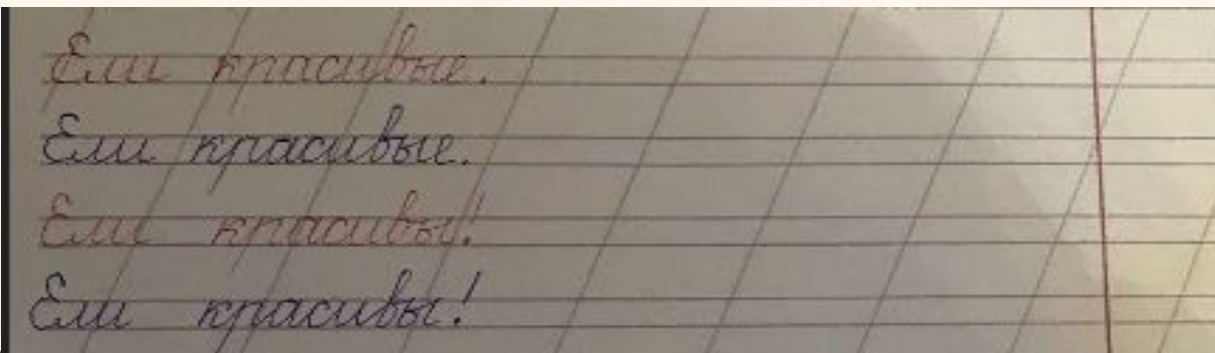 Ели красивые.
Ели красивые.
Ели красивы!
Ели красивы!